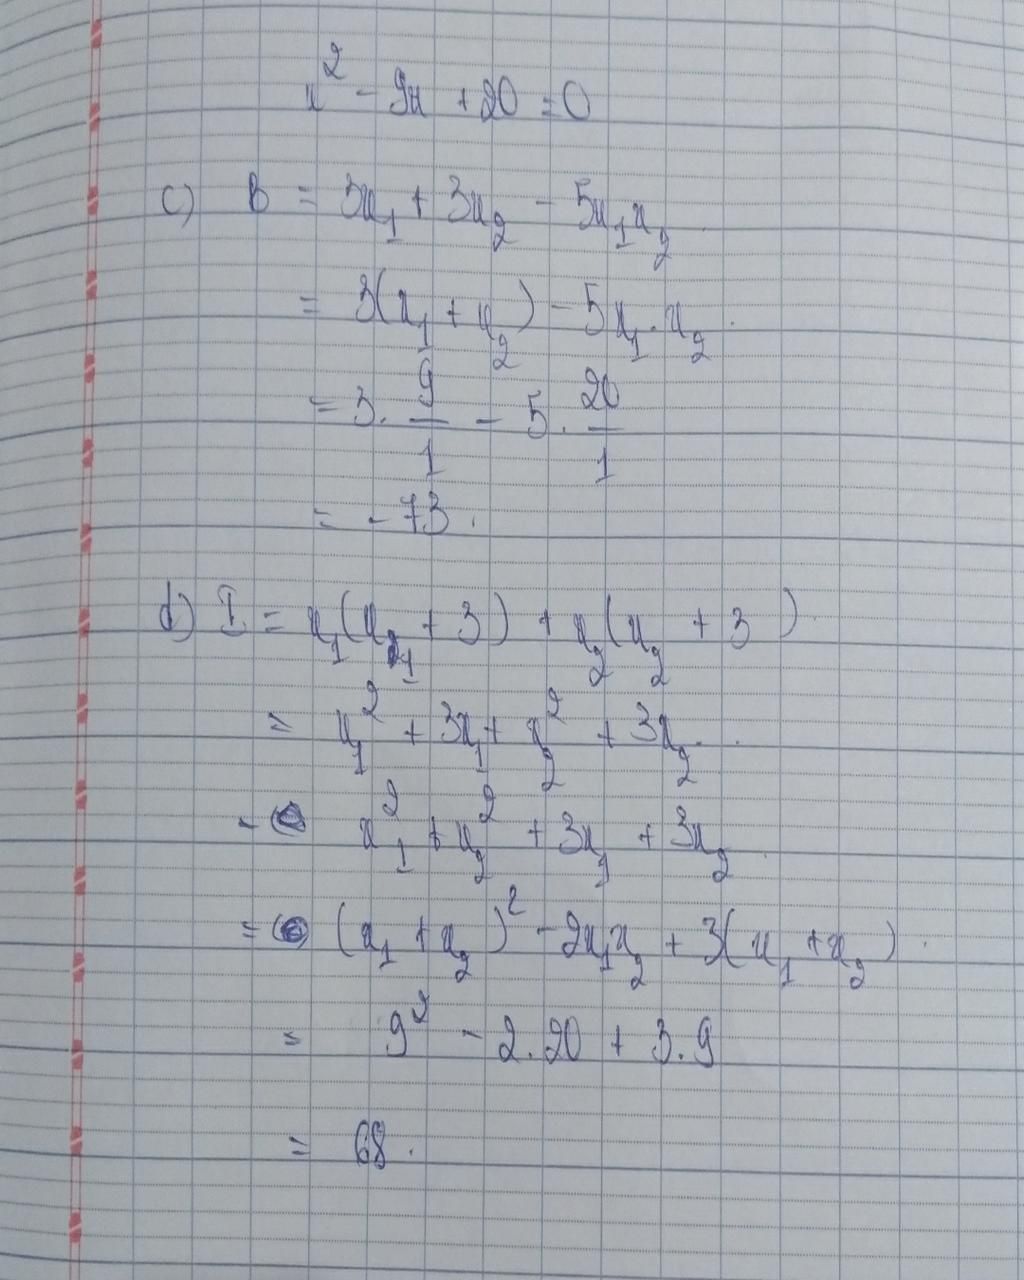 x² - 9x + 20 = 0
c) B = 3x₁ + 3x₂ - 5x₁x₂
= 3(x₁ + x₂) - 5x₁.x₂.
= 3. 9/1 - 5. 20/1
= - 73.
d) I = x₁(x₁ + 3) + x₂(x₂ + 3)
= x₁² + 3x₁ + x₂² + 3x₂.
= x₁² + x₂² + 3x₁ + 3x₂
= (x₁ + x₂)² - 2x₁x₂ + 3(x₁ + x₂).
= 9² - 2.20 + 3.9
= 68.